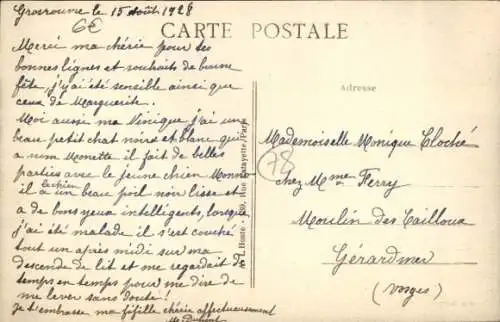 Grosrouvre le 15 août 1928
6€
CARTE POSTALE
Merci ma chérie pour tes
bonnes lignes et souhaits de bonne
fête, j'y ai été sensible ainsi que
ceux de Marguerite.
Moi aussi ma Nénique j'ai un
beau petit chat noir et blanc qui
a nom Monette il fait de belles
parties avec le jeune chien
le chien
il a un beau poil noir lisse et
a de bons yeux intelligents, lorsque
j'ai été malade il s'est couché
tout un après midi sur ma
descende de lit et me regardait de
temps en temps pour me dire de
me lever sans doute!
Je t'embrasse ma fifille chérie affectueusement
A. L'Hoste 139, Rue Lafayette, Paris
Adresse
Mademoiselle Monique Cloché
78
chez Mme Ferry
Moulin des Cailloux
Gérardmer
(Vosges)